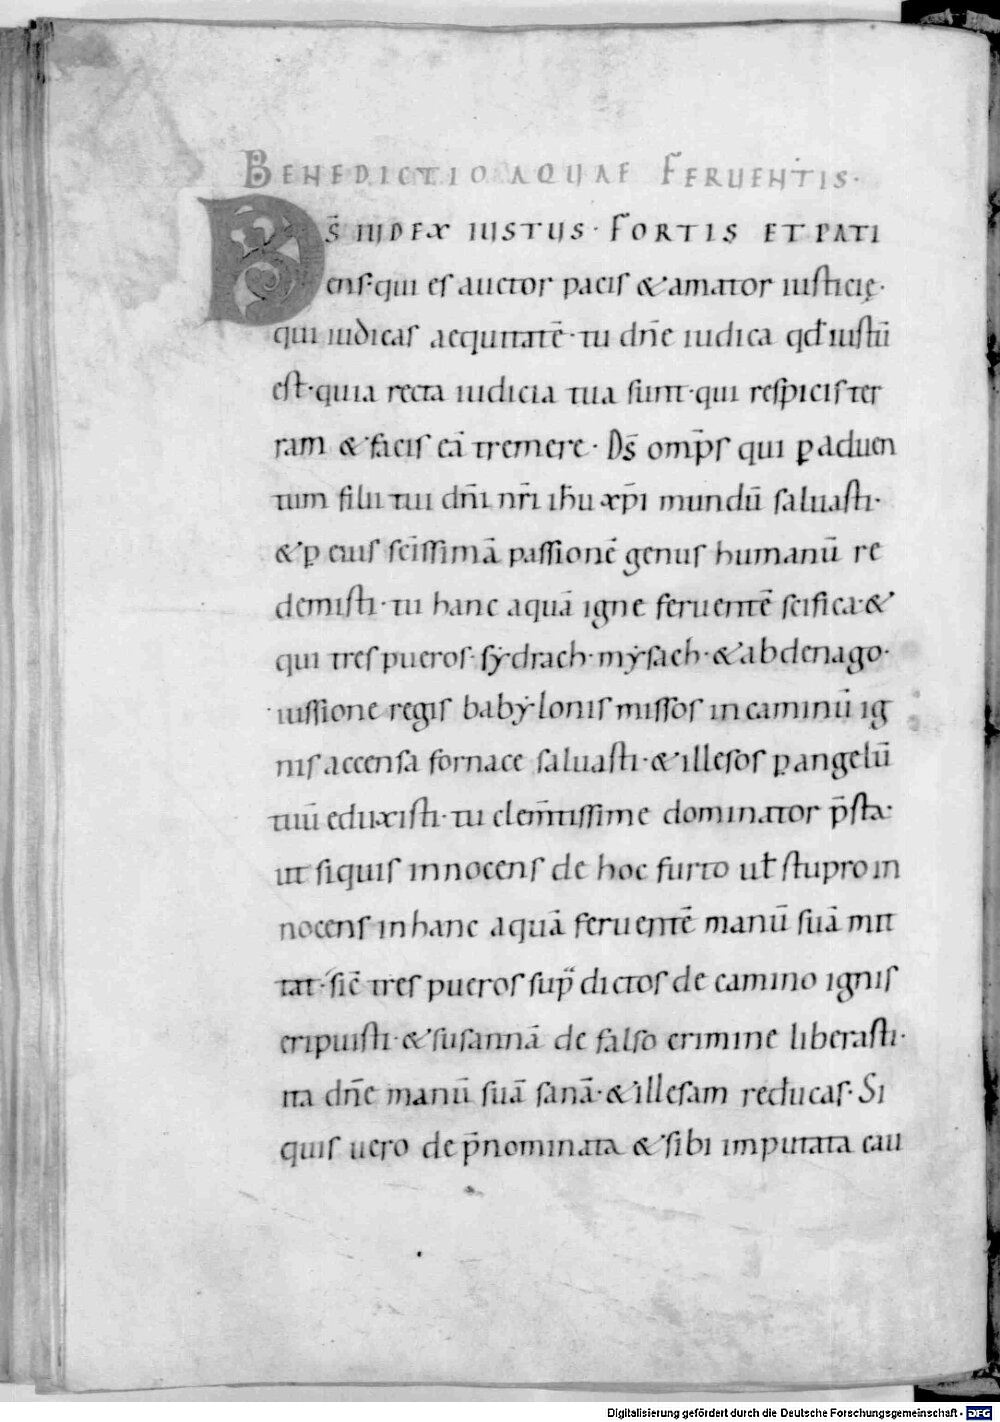 BENEDICTIO AQUAE FERUENTIS·
DS̄ IUDEX IUSTUS· FORTIS ET PATI
ens· qui es auctor pacis & amator iusticię·
qui iudicas aequitatē· tu dn̄e iudica qđ iustū
est· quia recta iudicia tua sunt· qui respicis ter
ram & facis eā tremere· Ds̄ omp̄s qui ꝑ aduen
tum filii tui dn̄i nr̄i ih̄u xp̄i mundū saluasti·
& ꝑ eius sc̄issimā passionē genus humanū re
demisti· tu hanc aquā igne feruentē sc̄ifica· &
qui tres pueros· sẏdrach· mẏsach· & abdenago·
iussione regis babẏlonis missos in caminū ig
nis accensa fornace saluasti· & illesos ꝑ angelū
tuū eduxisti· tu clem̄tissime dominator p̄sta·
ut siquis innocens de hoc furto ut̄ stupro in
nocens in hanc aquā feruentē manū suā mit
tat· sic̄ tres pueros sup̄dictos de camino ignis
eripuisti· & susannā de falso crimine liberasti·
ita dn̄e manū suā sanā· & illesam reducas· Si
quis uero de p̄nominata & sibi imputata cau
Digitalisierung gefördert durch die Deutsche Forschungsgemeinschaft - DFG